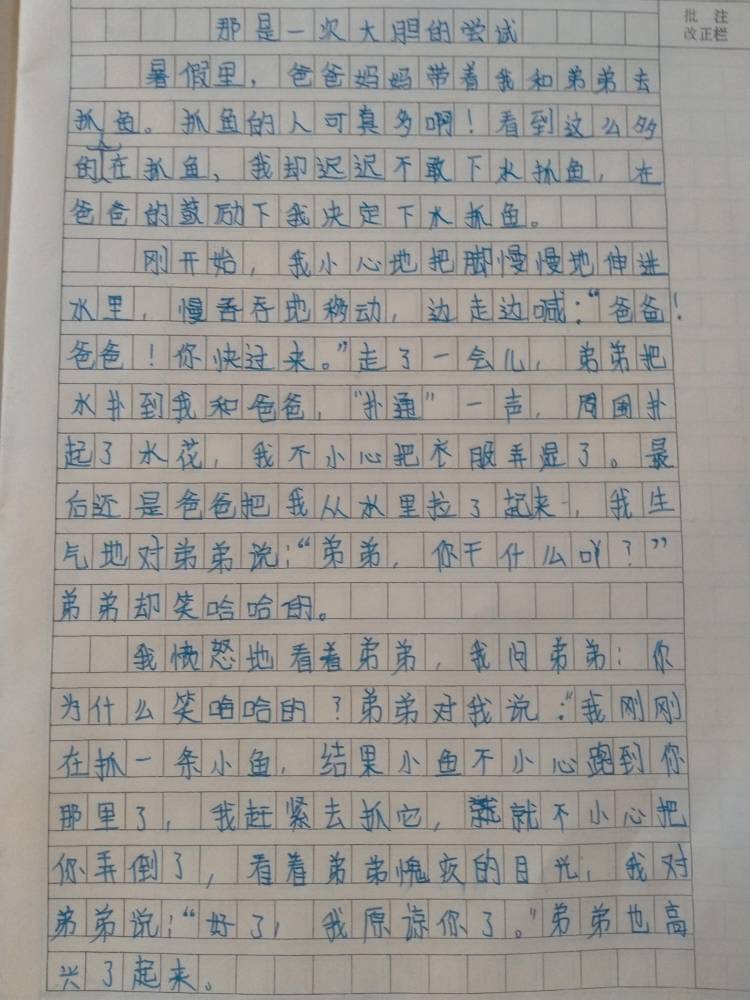 那是一次大胆的尝试
批注
改正栏
暑假里，爸爸妈妈带着我和弟弟去
抓鱼。抓鱼的人可真多啊！看到这么多
的在抓鱼，我却迟迟不敢下水抓鱼，在
爸爸的鼓励下我决定下水抓鱼。
刚开始，我小心地把脚慢慢地伸进
水里，慢吞吞地移动，边走边喊：“爸爸！
爸爸！你快过来。”走了一会儿，弟弟把
水扑到我和爸爸，“扑通”一声，周围扑
起了水花，我不小心把衣服弄湿了。最
后还是爸爸把我从水里拉了起来，我生
气地对弟弟说：“弟弟，你干什么吖？”
弟弟却笑哈哈的。
我愤怒地看着弟弟，我问弟弟：你
为什么笑哈哈的？弟弟对我说：“我刚刚
在抓一条小鱼，结果小鱼不小心跑到你
那里了，我赶紧去抓它，就不小心把
你弄倒了，看着弟弟愧疚的目光，我对
弟弟说：“好了，我原谅你了。”弟弟也高
兴了起来。